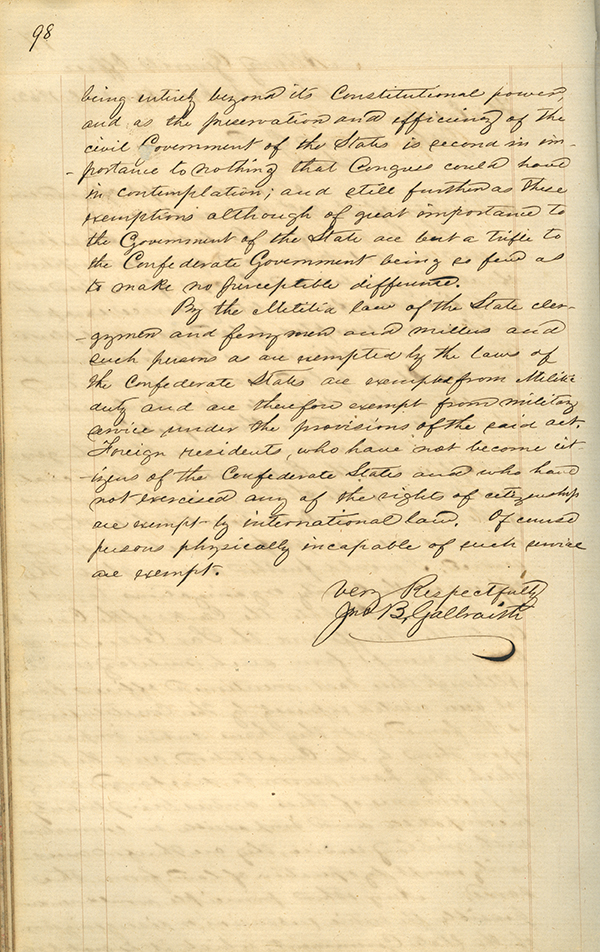 98
being entirely beyond its Constitutional power,
and as the preservation and efficiency of the
civil Government of the States is second in im-
-portance to nothing that Congress could have
in contemplation; and still further as these
exemptions although of great importance to
the Government of the State are but a trifle to
the Confederate Government being so few as
to make no perceptible difference.
By the Militia law of the State cler-
-gymen and ferrymen and millers and
such persons as are exempted by the laws of
the Confederate States are exempted from Militia
duty and are therefore exempt from military
service under the provisions of the said act.
Foreign residents, who have not become cit-
-izens of the Confederate States and who have
not exercised any of the rights of citizenship
are exempt by international law. Of course
persons physically incapable of such service
are exempt.
Very Respectfully
Jno B. Galbraith